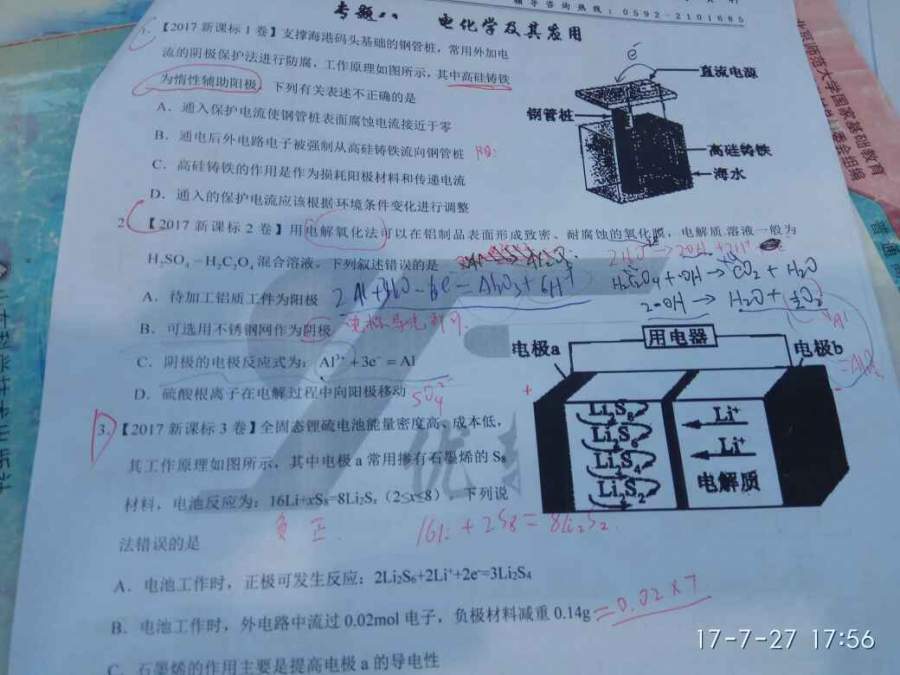 辅导咨询热线：0592-2101685
专题八 电化学及其应用
1. 【2017新课标1卷】支撑海港码头基础的钢管桩，常用外加电
流的阴极保护法进行防腐，工作原理如图所示，其中高硅铸铁
为惰性辅助阳极。下列有关表述不正确的是
A．通入保护电流使钢管桩表面腐蚀电流接近于零
B．通电后外电路电子被强制从高硅铸铁流向钢管桩
C．高硅铸铁的作用是作为损耗阳极材料和传递电流
D．通入的保护电流应该根据环境条件变化进行调整
e⁻
直流电源
钢管桩
高硅铸铁
海水
2 【2017新课标2卷】用电解氧化法可以在铝制品表面形成致密、耐腐蚀的氧化膜，电解质溶液一般为
H₂SO₄－H₂C₂O₄混合溶液。下列叙述错误的是
A．待加工铝质工件为阳极
2Al+3H₂O-6e⁻=Al₂O₃+6H⁺
H₂C₂O₄+·OH→CO₂+H₂O
2·OH→H₂O+½O₂
B．可选用不锈钢网作为阴极
C．阴极的电极反应式为：Al³⁺+3e⁻=Al
D．硫酸根离子在电解过程中向阳极移动
SO₄²⁻
用电器
电极a
电极b
+
-
Li₂S₈
Li₂S₆
Li₂S₄
Li₂S₂
Li⁺
Li⁺
电解质
3. 【2017新课标3卷】全固态锂硫电池能量密度高、成本低，
其工作原理如图所示，其中电极a常用掺有石墨烯的S₈
材料，电池反应为：16Li+xS₈=8Li₂Sₓ（2≤x≤8）。下列说
负 正
16Li+2S₈=8Li₂S₂
法错误的是
A．电池工作时，正极可发生反应：2Li₂S₆+2Li⁺+2e⁻=3Li₂S₄
B．电池工作时，外电路中流过0.02mol电子，负极材料减重0.14g
=0.02×7
C．石墨烯的作用主要是提高电极a的导电性
北京师范大学国家基础教育
委会组编
普通高
17-7-27 17:56